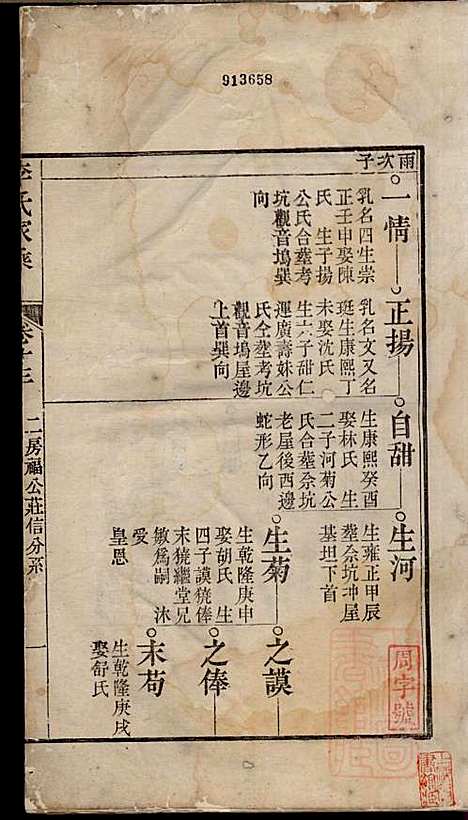 913658
雨次子
一情
乳名四生崇
正壬申娶陳
氏 生子揚
公氏合塟考
坑觀音塢巽
向
正揚
乳名文又名
珽生康熙丁
未娶沈氏
生六子甜仁
運廣壽妹公
氏仝塟考坑
觀音塢屋邊
上首巽向
自甜
生康熙癸酉
娶林氏 生
二子河菊公
氏合塟佘坑
老屋後西邊
蛇形乙向
生河
生雍正甲辰
塟佘坑坤屋
基坦下首
生菊
生乾隆庚申
娶胡氏 生
四子謨獟俸
末獟繼堂兄
敏爲嗣 沐
受
皇恩
之謨
之俸
末苟
生乾隆庚戌
娶舒氏
氏家乘
二房福公莊信分系
一
周字號